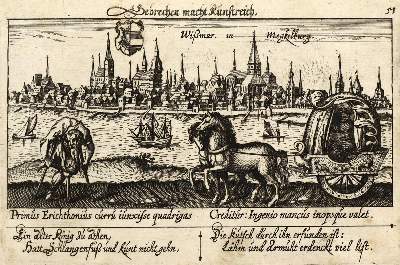 Gebrechen macht Kunstreich.
58
Wißmar in Meghelburg.
Primus Erichthonius currú iúnxiße quadrigas
Creditúr: Ingenio mancús inopsque valet.
Ein alter König zú Athen,
Hatt Schlangenfúß und kúnt nicht gehn,
Die Kútsch dúrch ihn erfúnden ist:
Lähm und Armúht erdenckt viel list.